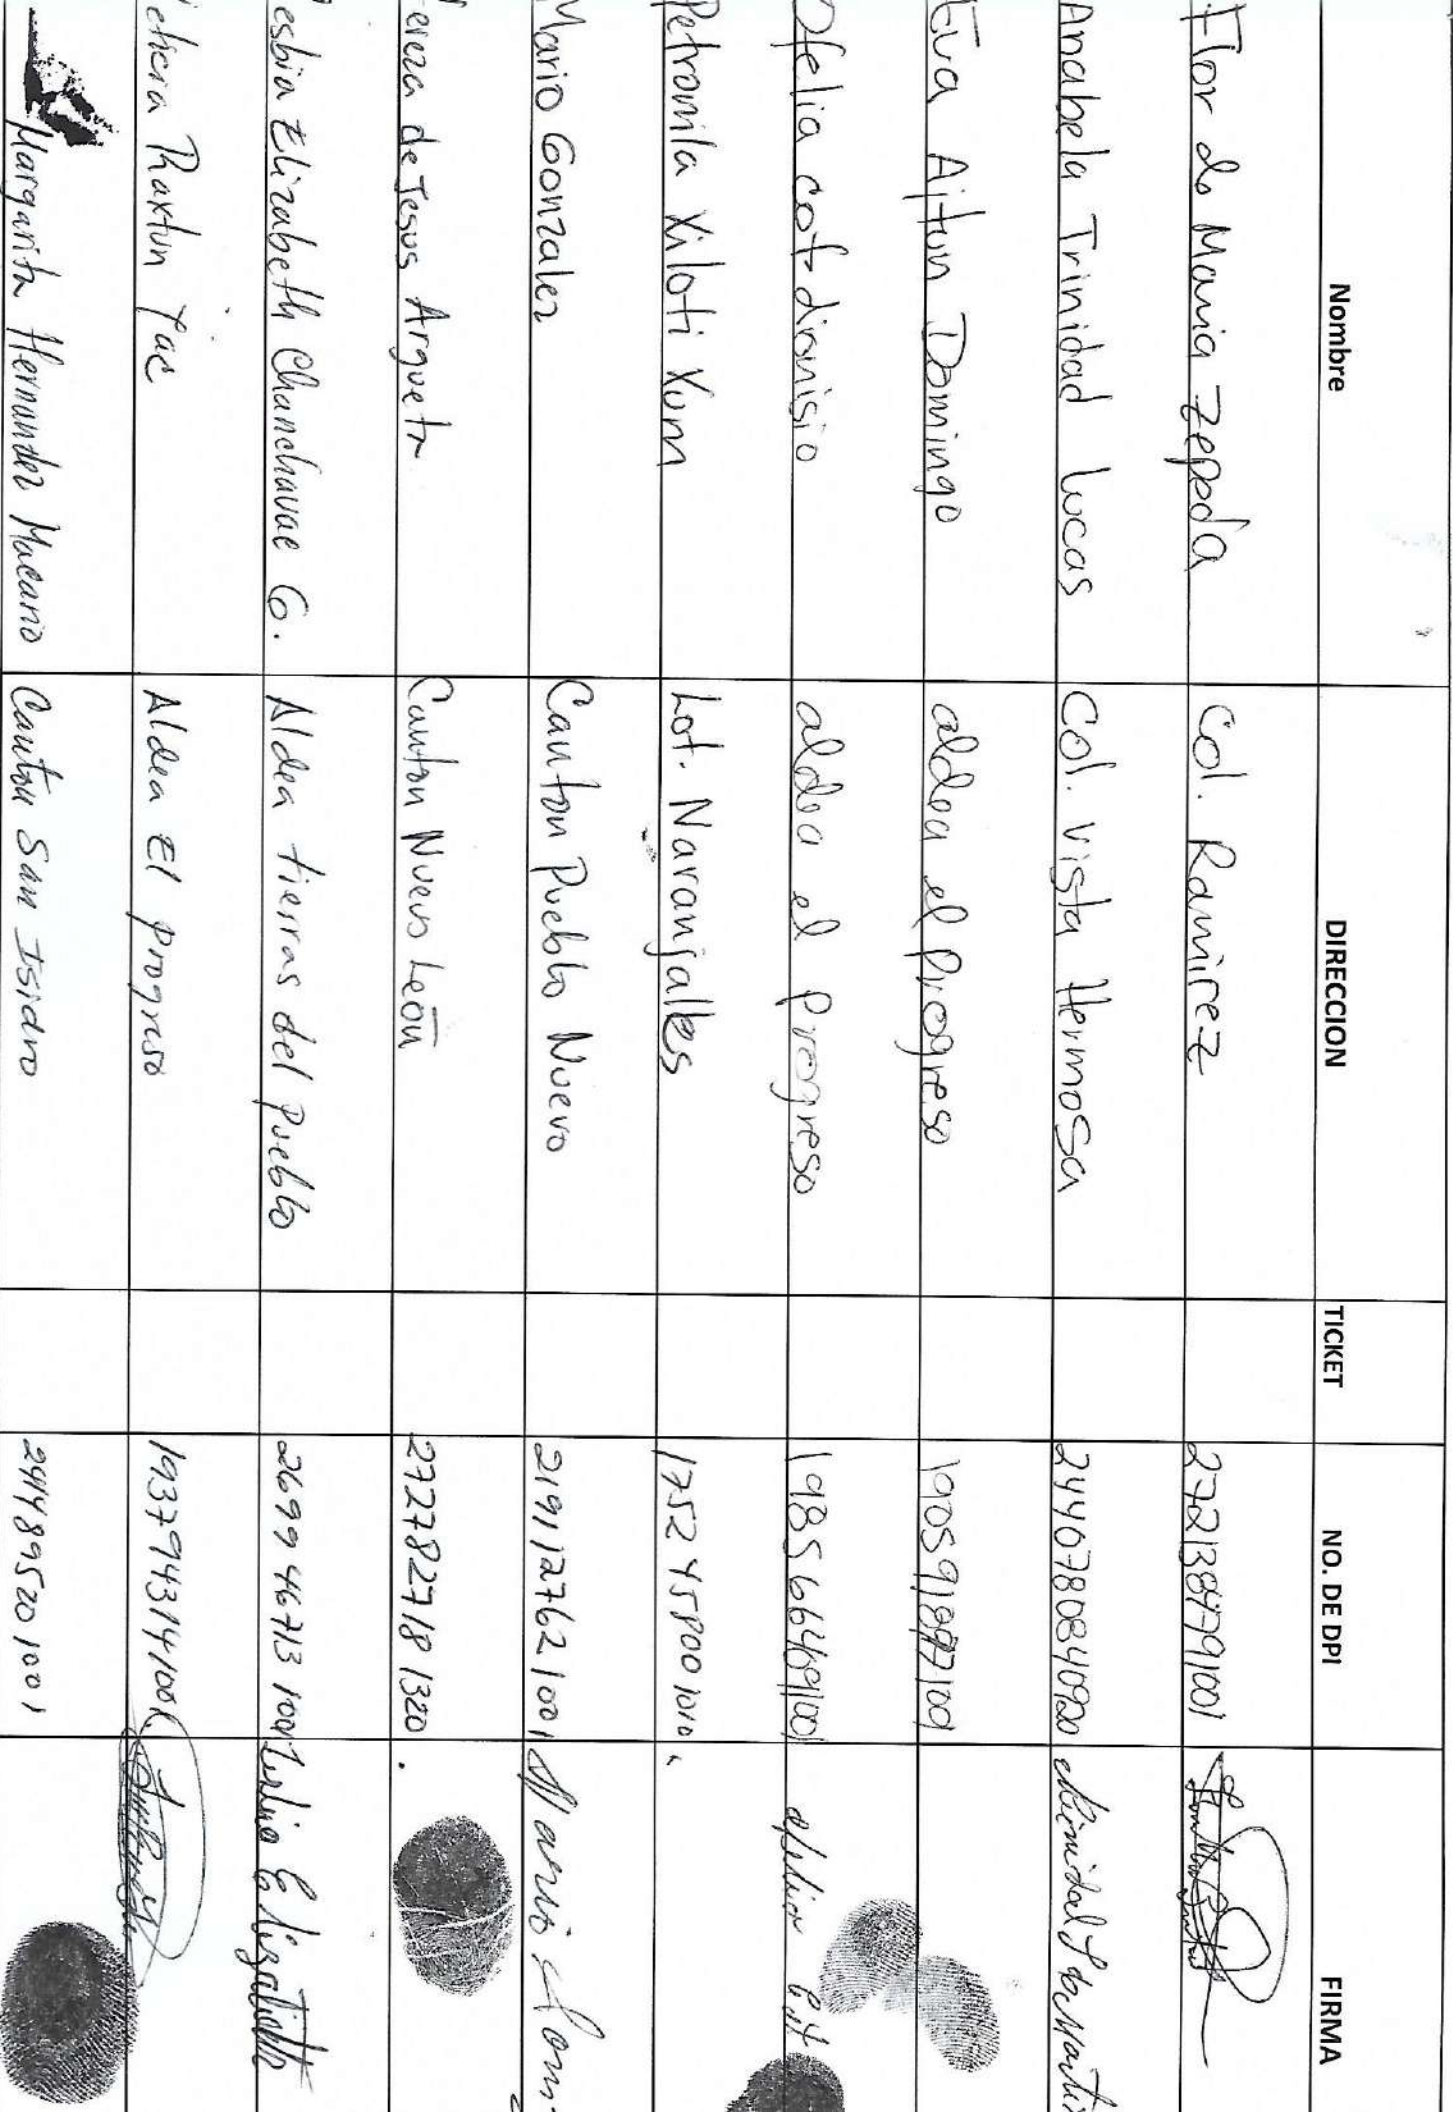 Nombre DIRECCION TICKET NO. DE DPI FIRMA
Flor de Maria Zepeda Col. Ramirez 2721384791001
Anabela Trinidad Lucas Col. Vista Hermosa 24406780840920
Eva Ajtun Domingo aldea el progreso
Ofelia cot dionisio aldea el progreso 1985664691001 ofelia cot
Petronila Xiloti Xum Lot. Naranjalles 1752458001010
Mario Gonzalez Canton Pueblo Nuevo 2191127621001 Mario
ereza de Jesus Argueta Canton Nuevo León 2727827181320.
esbia Elizabeth Chanchavac G. Aldea tierras del Pueblo 2699467131001 Elizabeth
eticia Raxtun Yac Aldea El progreso 1937943141001
Margarita Hernandez Macario Canton San Isidro 2414895201001